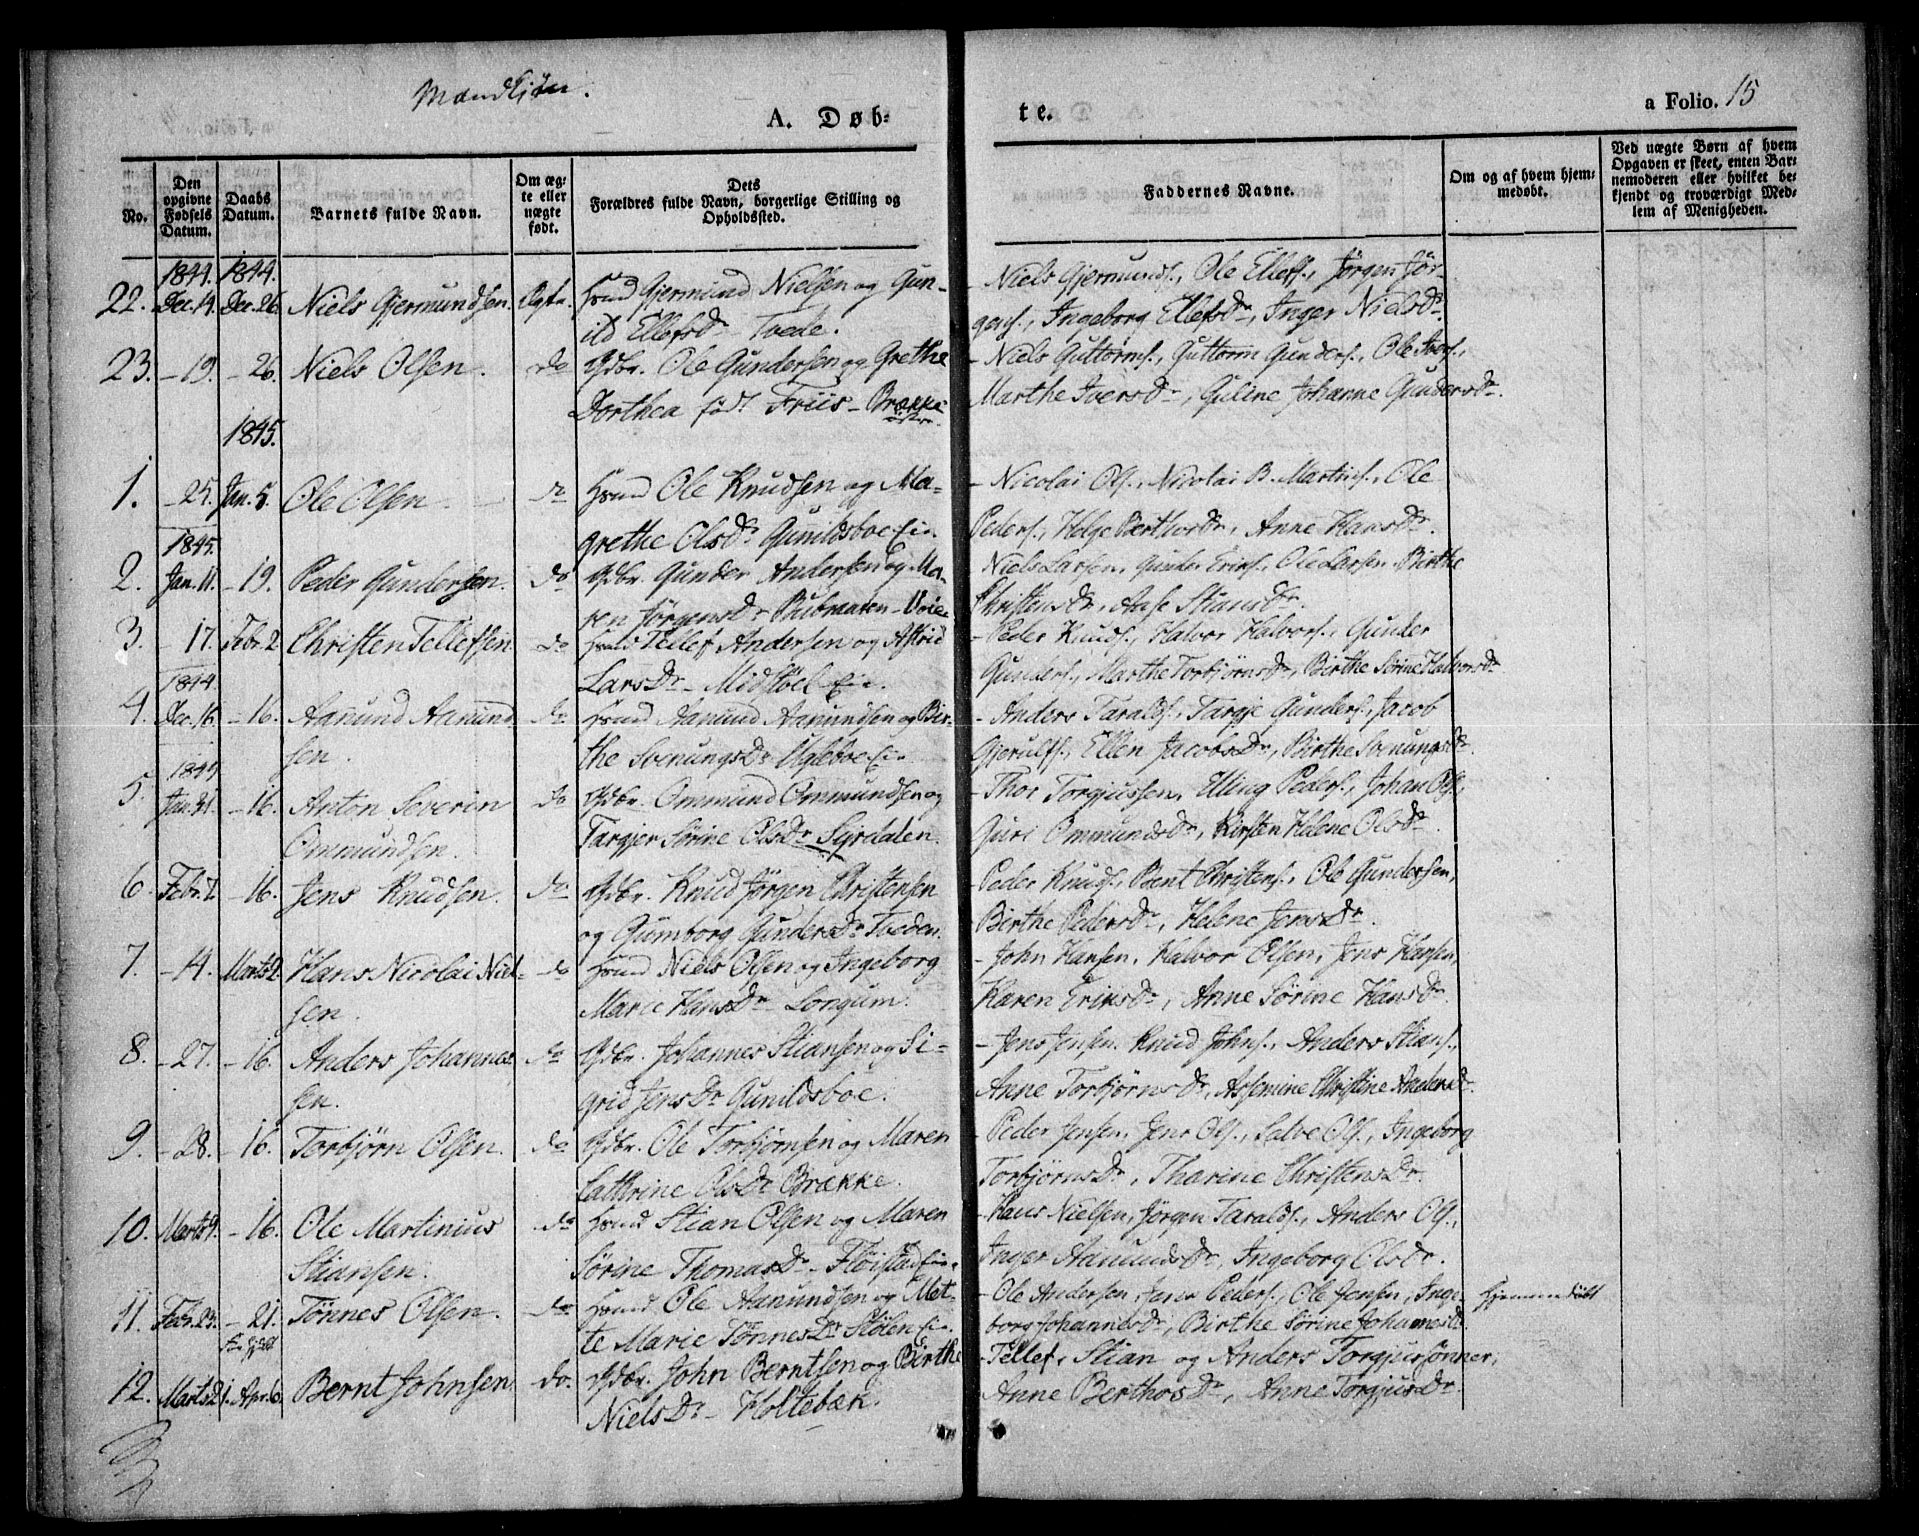 Mandkjøn.
A. Døb-
te.
a Folio. 15
No.
Den opgivne Fødsels Datum.
Daabs Datum.
Barnets fulde Navn.
Om ægte eller nægte født.
Forældres fulde Navn, borgerlige Stilling og Opholdssted.
Faddernes Navne.
Om og af hvem hjemmedøbt.
Ved nægte Børn af hvem Opgaven er skeet, enten Barnemoderen eller hvilket bekjendt og troværdigt Medlem af Menigheden.
1844. 1844.
22. Dec. 14. Dec. 26. Niels Gjermundsen. Ægte. Hsmd Gjermund Nielsen og Gun-
ild Ellefsdr Tvede.
- Niels Gjermunds., Ole Ellefs., Jørgen Jør-
gens., Ingeborg Ellefsdr, Inger Nielsdr.
23. - 19. - 26. Niels Olsen. do Gdbr. Ole Gundersen og Grethe
Dorthea født Friis - Brække
østre.
- Niels Guttorms., Guttorm Gunders., Ole Ivers.,
Marthe Iversdr, Guline Johanne Gundersdr.
1845.
1. - 25. Jan. 5. Ole Olsen. do Hsmd Ole Knudsen og Ma-
grethe Olsdr Gunildsboe Ei.
- Nicolai Ols., Nicolai B. Martins., Ole
Peders., Helge Berthosdr, Anne Hansdr.
1845.
2. Jan. 11. - 19. Peder Gundersen. do Gdbr. Gunder Andersen og Ma-
ren Jørgensdr - Voie
Niels Larsen, Gunder Eriks., Ole Larsen, Birthe
Christensdr, Aase Stiansdr.
3. - 17. Febr. 2. Christen Tellefsen. do Hsmd Tellef Andersen og Astrid
Larsdr - Midtbøl Ei.
- Peder Knuds., Halvor Halvors., Gunder
Gunders., Marthe Torbjørnsdr, Birthe Sørine Halvorsdr
1844
4. Dec. 16. - 16. Aanund Aanund
sen. do Hsmd Aanund Aanundsen og Bir-
the Svenungsdr Ugleboe Ei.
- Anders Taralds., Targje Gunders., Jacob
Gjerulfs., Ellen Jacobsdr, Birthe Svenungsdr.
5. Jan. - 16. Anton Severin
Ommundsen. do Gdbr. Ommund Ommundsen og
Targjer Sørine Olsdr Syrdalen.
- Thor Torgjussen, Elling Peders., Johan Ols.,
Guri Ommundsdr, Kirsten Helene Olsdr.
6. Febr. 7. - 16. Jens Knudsen. do Gdbr. Knud Jørgen Christensen
og Gumborg Gundersdr Tveden.
- Peder Knuds., Bent Christens., Ole Gundersen,
Birthe Pedersdr, Helene Jensdr.
7. - 14. Marts 2. Hans Nicolai Niel-
sen. do Hsmd Niels Olsen og Ingeborg
Marie Hansdr Longum.
- John Hansen, Halvor Olsen, Jens Hansen,
Karen Eriksdr, Anne Sørine Hansdr.
8. - 27. - 16. Anders Johannes
sen. do Gdbr. Johannes Stiansen og Si-
grid Jensdr Gunildsboe.
- Jens Jensen, Knud Johns., Anders Stians.,
Anne Torbjørnsdr, Assemine Christine Andersdr.
9. - 28. - 16. Torbjørn Olsen. do Gdbr. Ole Torbjørnsen og Maren
Cathrine Olsdr Brække.
- Peder Jensen, Jens Ols., Salve Ols., Ingeborg
Torbjørnsdr, Tharine Christensdr.
10. Marts 9. - 16. Ole Martinius
Stiansen. do Hsmd Stian Olsen og Maren
Sørine Thomasdr - Fløistad Eie.
- Hans Nielsen, Jørgen Taralds., Anders Ols.,
Inger Aanundsdr, Ingeborg Olsdr.
11. Febr. 23. - 21. Tønnes Olsen. do Hsmd Ole Aanundsen og Met-
te Marie Tønnesdr Stølen Ei.
- Ole Andersen, Jens Peders., Ole Jensen, Inge-
borg Johannesdr, Birthe Sørine Johannesdr.
Hjemmedøbt
12. Marts 21. Apr. 6. Bernt Johnsen. do. Gdbr. John Berntsen og Birthe
Nielsdr - Holtebæk.
- Tellef, Stian og Anders Torgjussønner,
Anne Berthosdr, Anne Torgjusdr.